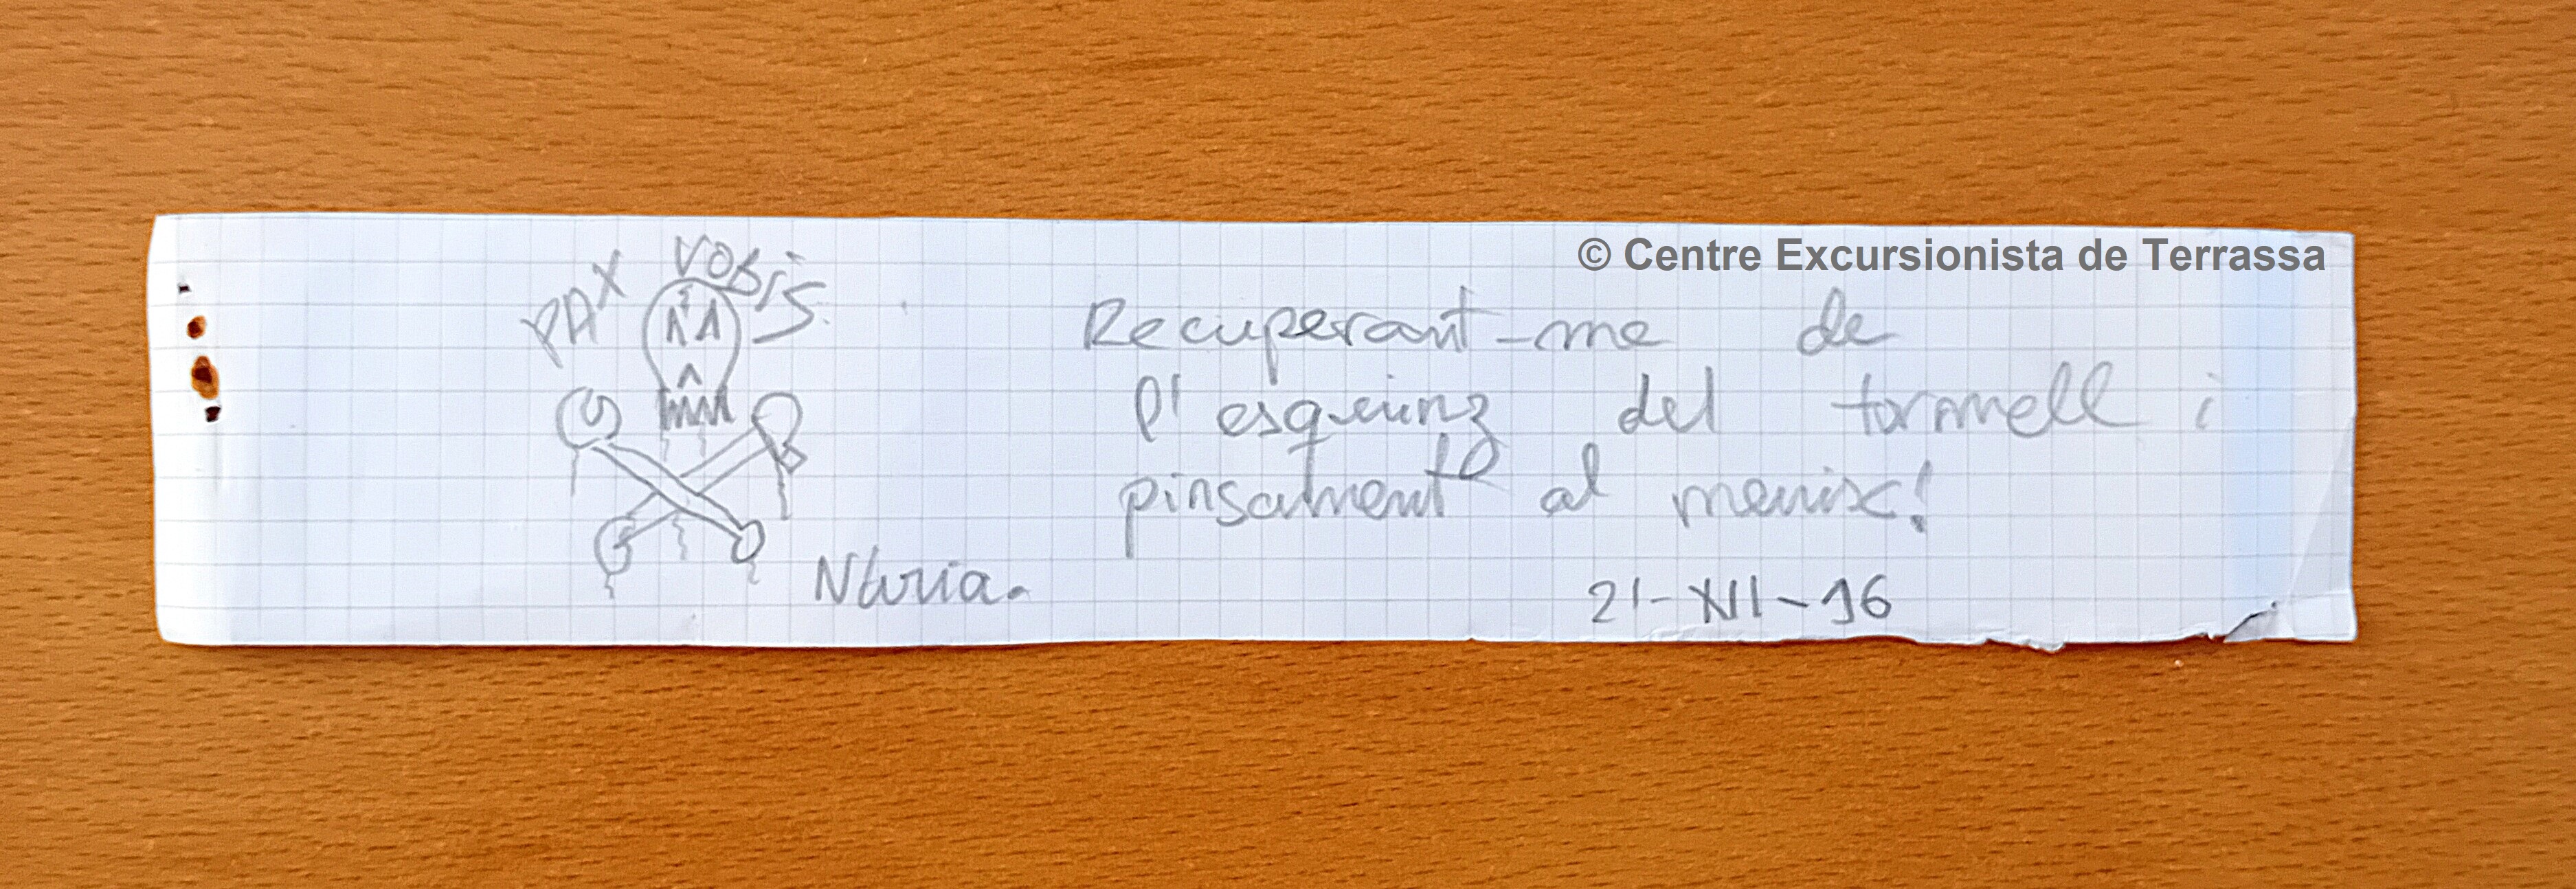 © Centre Excursionista de Terrassa
PAX VOBIS.
Recuperant-me de
l'esquinz del turmell i
pinsament al menix!
Núria.
21-XII-16